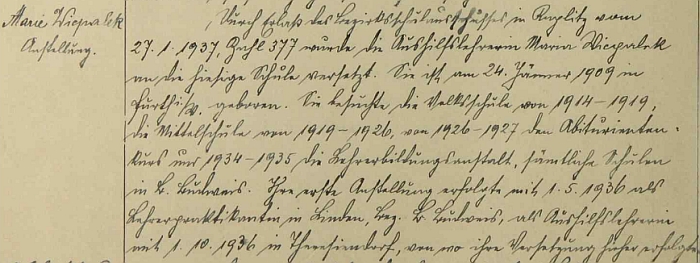 Marie Wiepalek
Anstellung.
Durch Erlaß des Bezirksschulausschusses in Kaplitz vom
27. 1. 1937, Zahl 377 wurde die Aushilfslehrerin Maria Wiepalek
an die hiesige Schule versetzt. Sie ist am 24. Jänner 1909 in
geboren. Sie besuchte die Volksschule von 1914 – 1919,
die Mittelschule von 1919 – 1926, von 1926 – 1927 den Abiturienten-
kurs und 1934 – 1935 die Lehrerbildungsanstalt, sämtliche Schulen
in B. Budweis. Ihre erste Anstellung erfolgte mit 1. 5. 1936 als
Lehrerpraktikantin in Linden, Bez. B. Budweis, als Aushilfslehrerin
mit 1. 10. 1936 in Theresiendorf, von wo ihre Versetzung hieher erfolgte.